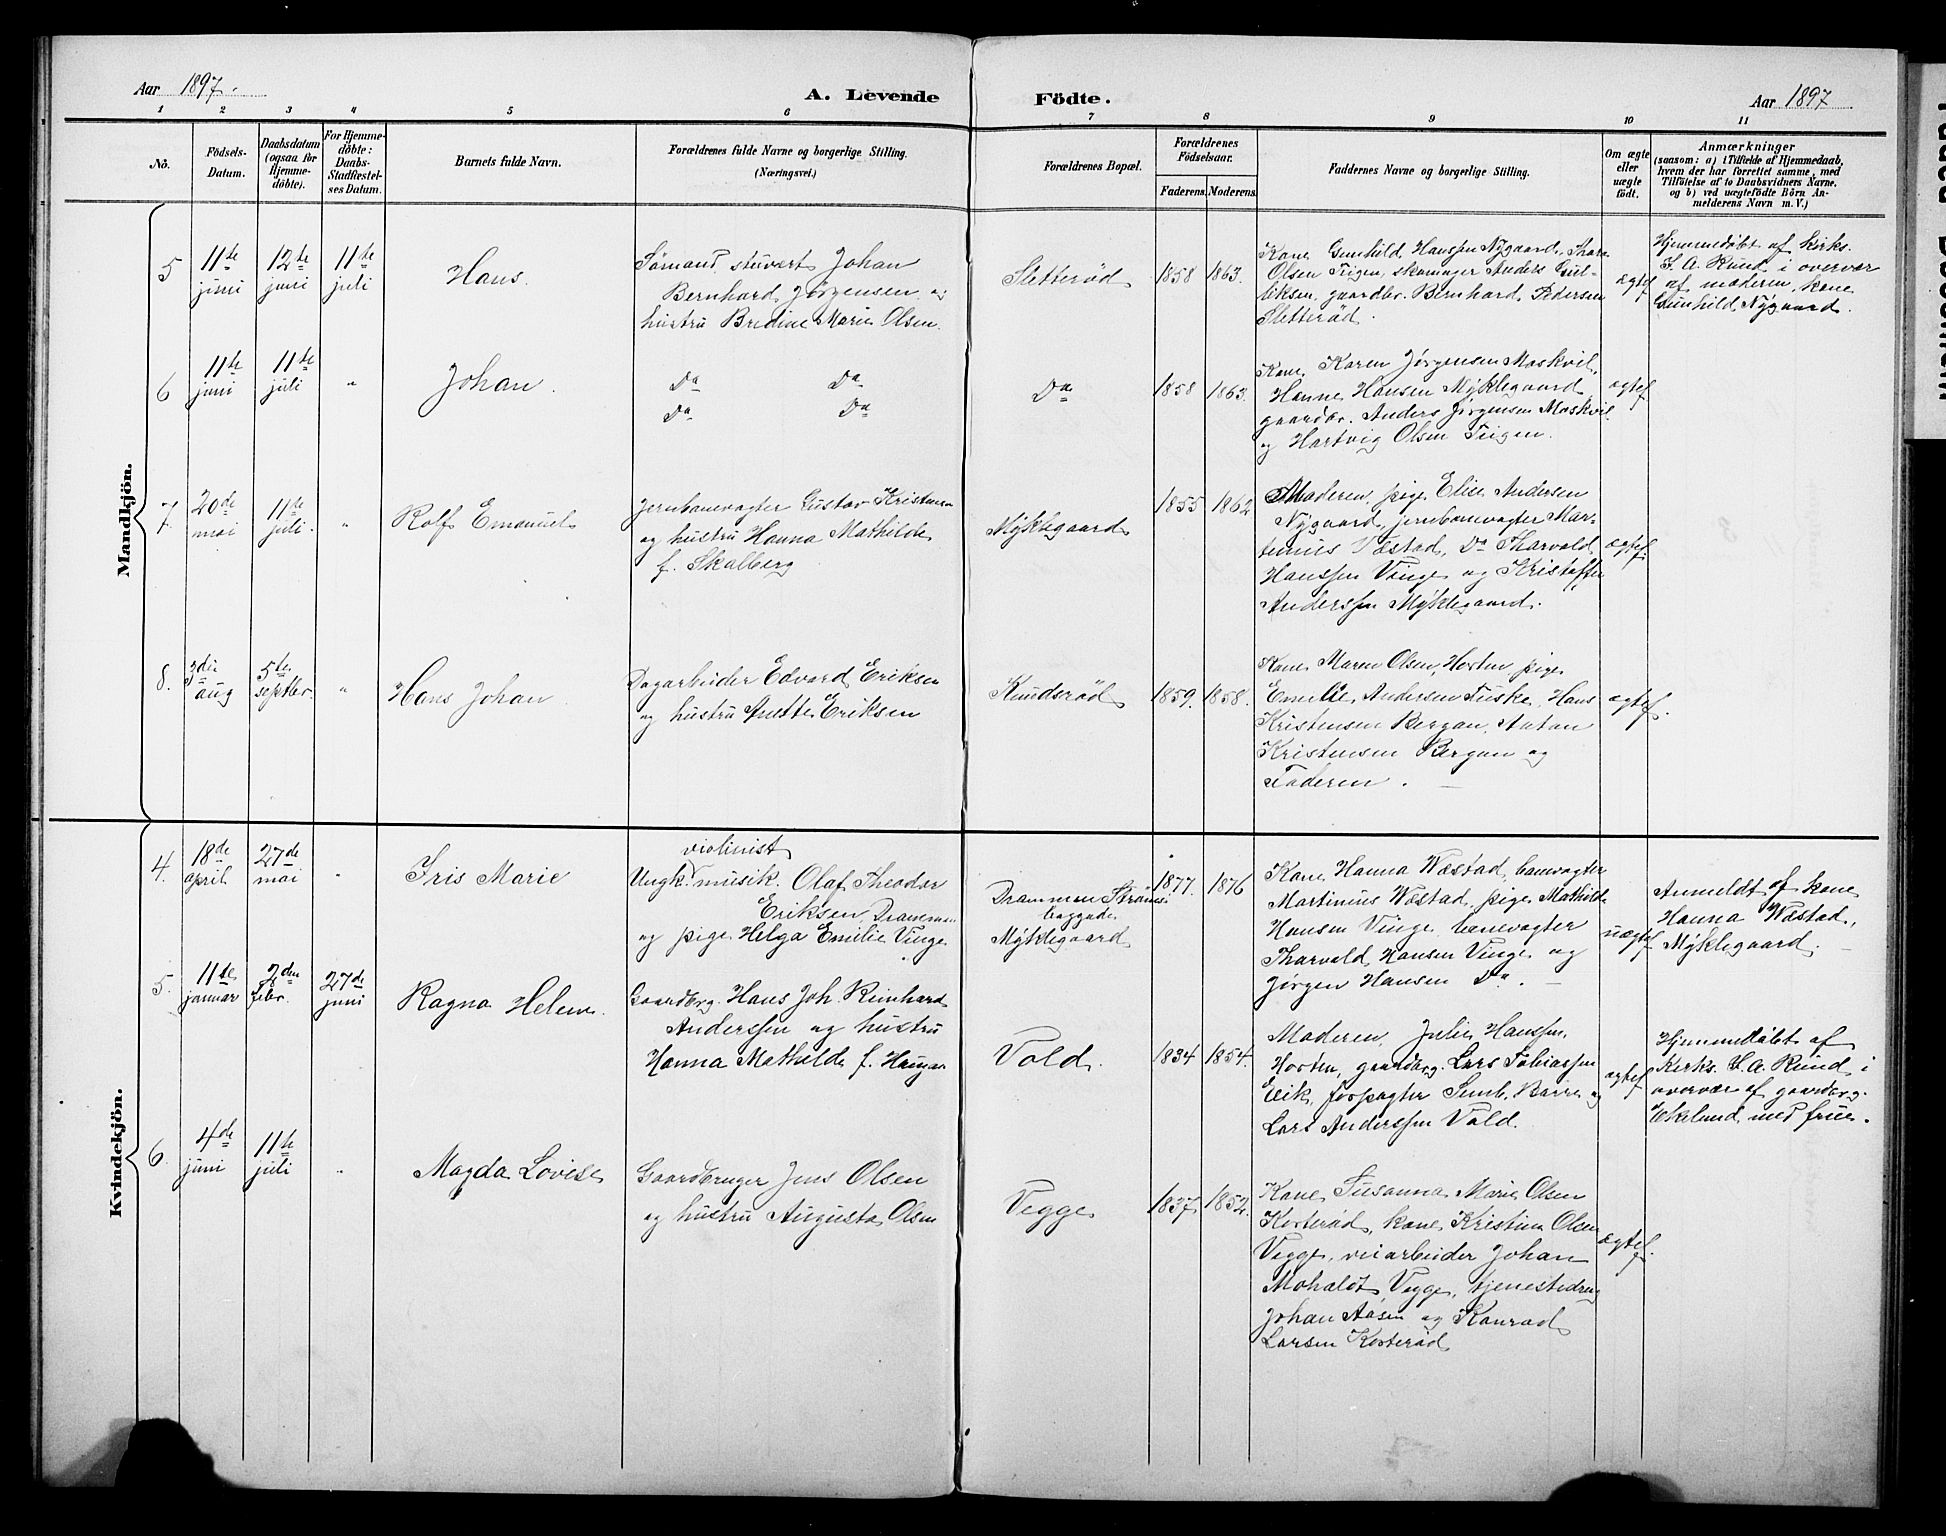 Aar 1897.
A. Levende Födte.
Aar 1897
1 2 3 4 5 6 7 8 9 10 11
Nô.
Födsels-
Datum.
Daabsdatum
(ogsaa för
Hjemme-
döbte).
For Hjemme-
döbte:
Daabs-
Stadfæstel-
ses Datum.
Barnets fulde Navn.
Forældrenes fulde Navne og borgerlige Stilling.
(Næringsvei.)
Forældrenes Bopæl.
Forældrenes
Födselsaar.
Faderens. Moderens.
Faddernes Navne og borgerlige Stilling.
Om ægte
eller
uægte
födt.
Anmærkninger
(saasom: a) i Tilfælde af Hjemmedaab,
hvem der har forrettet samme, med
Tilföielse af to Daabsvidners Navne,
og b) ved uægtefödte Börn An-
melderens Navn m. V.)
Mandkjön.
5
11te
juni
12te
juni
11te
juli
Hans.
Sömand, stuvert Johan
Bernhard Jørgensen og
hustru Bredine Marie Olsen.
Sletterød
1858 1863.
Kone Gunhild Hanssen Nygaard, Thora
Olsen Teigen, skoninger Anders Gul-
liksen, gaardbr. Bernhard Pedersen
Sletterød.
ægtef.
Hjemmedøbt af kirks.
S. A. Rund i overvær
af moderen, kone
Gunhild Nygaard.
6
11te
juni
11te
juli
"
Johan.
Do Do
Do Do
Do
1858 1863.
Kone Karen Jørgensen Moskvil,
Hanne Hansen Myklegaard
gaardbr. Anders Jørgensen Moskvil
og Hartvig Olsen Teigen.
ægtef.
7.
20de
mai
11te
juli.
"
Rolf Emanuel
Jernbanevagter Gustav Kristensen
og hustru Hanna Mathilde
f. Skalberg
Myklegaard
1855 1862
Moderen, pige Elise Andersen
Nygaard, jernbanevagter Mar-
tinius Væstad, Do Tharvald
Hanssen Vinge og Kristoffer
Anderssen Myklegaard.
ægtef.
8.
3die
aug
5te
septbr.
"
Hans Johan.
Dagarbeider Edvard Eriksen
og hustru Anette Eriksen
Knudsrød
1859. 1858.
Kone Maren Olsen, Horten, pige
Emelie Andersen Fuske, Hans
Kristensen Bergan, Anton
Kristensen Bergan og
Faderen.
ægtef.
Kvindekjön.
4.
18de
april
27de
mai
"
Iris Marie
violinist
Ungk. musik. Olaf Theodor
Eriksen, Drammen
og pige Helga Emilie Vinge
Drammen Strøms
baggade
Myklegaard
1877. 1876
Kone Hanna Wæstad, banevagter
Martinius Wæstad, pige Mathilde
Hansen Vinge, banevagter
Tharvald Hansen Vinge og
Jørgen Hansen Do.
uægtef.
Anmeldt af kone
Hanna Wæstad,
Myklegaard.
5.
11te
januar
2den
febr.
27de
juni
Ragna Helene.
Gaardbrg. Hans Joh. Reinhard
Anderssen og hustru
Hanna Mathilde f. Haugan
Vold.
1834 1854.
Moderen, Julie Hanssen,
Horten, gaardbrg. Lars Tobiassen
Eik, forpagter Semb, Barre og
Lars Anderssen Vold.
ægtef.
Hjemmedøbt af
Kirks. S. A. Rund i
overvær af gaardbrg.
Ekelund med frue.
6.
4de
juni
11te
juli
"
Magda Lovise
Gaardbruger Jens Olsen
og hustru Augusta Olsen
Vegge
1837. 1852.
Kone Susanna Marie Olsen
Korterød, kone Kristine Olsen
Vegge, veiarbeider Johan
Mohaldt Vegge, tjenestedreng
Johan Aasen og Konrad
Larsen Korterød
ægtef.